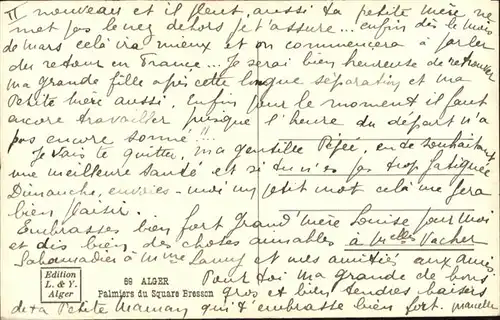 II nouveau et il pleut, aussi ta petite mère ne
met pas le nez dehors je t'assure... enfin dès le mois
de mars celà ira mieux et on commencera à parler
du retour en France... Je serai bien heureuse de retrouver
ma grande fille après cette longue séparation et ma
Petite Mère aussi. Enfin pour le moment il faut
encore travailler puisque l'heure du départ n'a
pas encore sonné!!!
Je vais te quitter, ma gentille Péjée, en te souhaitant
une meilleure santé et si tu n'es pas trop fatiguée
Dimanche, envoies-moi un petit mot celà me fera
bien plaisir.
Embrasses bien fort Grand'Mère Louise pour moi
et dis bien des choses aimables à Melles Vacher
à Mme Lamy et mes amitiés aux amis.
Pour toi ma grande de bons
gros et bien tendres baisers
de ta Petite Maman qui t'embrasse bien fort.
Edition
L. & Y.
Alger
99 ALGER
Palmiers du Square Bresson